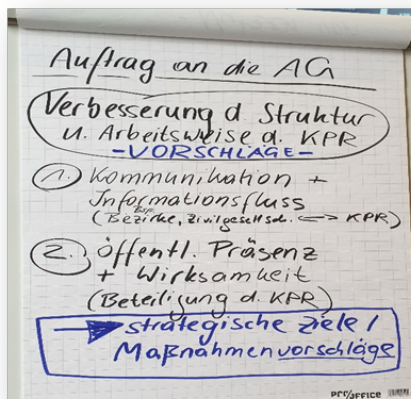 Auftrag an die AG
Verbesserung d Struktur
u. Arbeitsweise d. KPR
- VORSCHLÄGE -
1. Kommunikation +
Informationsfluss
Bsp.
(Bezirke, Zivilgesellsch. <-> KPR)
2. öffentl. Präsenz
+ Wirksamkeit
(Beteiligung d. KPR)
→ strategische Ziele /
Maßnahmenvorschläge